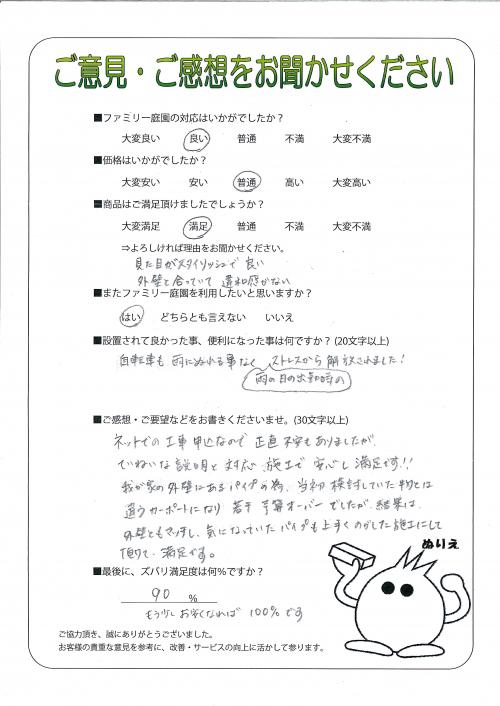 ご意見・ご感想をお聞かせください
■ファミリー庭園の対応はいかがでしたか？
大変良い 良い 普通 不満 大変不満
■価格はいかがでしたか？
大変安い 安い 普通 高い 大変高い
■商品はご満足頂けましたでしょうか？
大変満足 満足 普通 不満 大変不満
⇒よろしければ理由をお聞かせください。
見た目がスタイリッシュで良い
外壁と合っていて 違和感がない
■またファミリー庭園を利用したいと思いますか？
はい どちらとも言えない いいえ
■設置されて良かった事、便利になった事は何ですか？(20文字以上)
自転車も雨にぬれる事なく ストレスから解放されました！
雨の日の出勤時の
■ご感想・ご要望などをお書きくださいませ。(30文字以上)
ネットでの工事申込なので 正直不安もありましたが、
ていねいな説明と対応、施工で安心し満足です!!
我が家の外壁にあるパイプの為、当初検討していた物とは
違うカーポートになり 若干予算オーバーでしたが、結果は、
外壁ともマッチし、気になっていたパイプも上手くのがした施工にして
頂けて 満足です。
ぬりえ
■最後に、ズバリ満足度は何％ですか？
90 %
もう少しお安くなれば 100%です
ご協力頂き、誠にありがとうございました。
お客様の貴重な意見を参考に、改善・サービスの向上に活かして参ります。